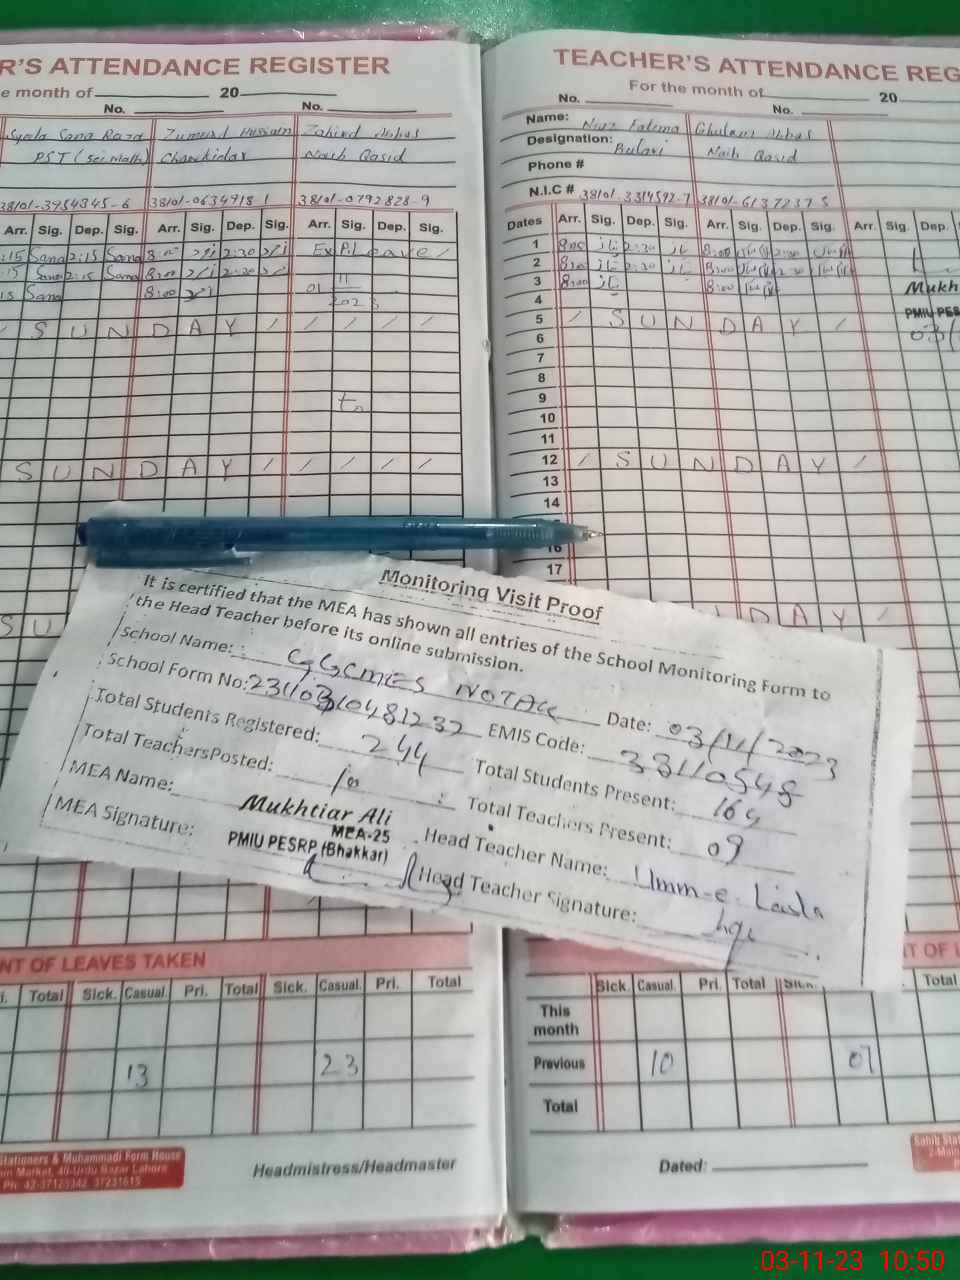 R'S ATTENDANCE REGISTER
e month of 20
No. No.
Syeda Sana Raza Zumerd Hussain Zahird Abbas
PST (Sci Math) Chowkidar Naib Qasid
38101-0634918-1 38101-0792828-9
Arr. Sig. Dep. Sig. Arr. Sig. Dep. Sig. Arr. Sig. Dep. Sig.
:15 Sana 2:15 Sana 8:00 2:30 Ex P. Leave /
:15 Sana 2:15 Sana 8:00 2:30
15 Sana 8:00 01 11 2023
/ S U N D A Y / / / / /
S U N D A Y / / / / /
S U
NT OF LEAVES TAKEN
i. Total Sick. Casual Pri. Total Sick. Casual. Pri. Total
13 23
Stationers & Muhammadi Form House
Market, 40-Urdu Bazar Lahore
Ph: 42-37123342, 37231615
Headmistress/Headmaster
TEACHER'S ATTENDANCE REG
For the month of 20
No. No.
Name: Niaz Fatima Ghulam Abbas
Designation: Bulavi Naib Qasid
Phone #
N.I.C # 38101-3314592-7 38101-6137237-5
Dates Arr. Sig. Dep. Sig. Arr. Sig. Dep. Sig. Arr. Sig. Dep.
1 8:00 2:30 8:00 2:30
2 8:00 2:30 8:00 2:30
3 8:00 8:00
Mukh
4
PMIU PES
5 / S U N D A Y /
03/
6
7
8
9
10
11
12 / S U N D A Y /
13
14
16
17
D A Y /
Monitoring Visit Proof
It is certified that the MEA has shown all entries of the School Monitoring Form to
the Head Teacher before its online submission.
School Name: GGCMES NOTAK Date: 03/11/2023
School Form No: 23110310481232 EMIS Code: 38110548
Total Students Registered: 244 Total Students Present: 164
Total TeachersPosted: 10 Total Teachers Present: 09
MEA Name: Mukhtiar Ali Head Teacher Name: Umm-e-Laila
MEA-25
PMIU PESRP (Bhakkar)
MEA Signature: Head Teacher Signature:
NT OF L
Sick. Casual. Pri. Total Sick. Total
This month
Previous 10 07
Total
Dated:
Sahib Stat
2-Main
03-11-23 10:50